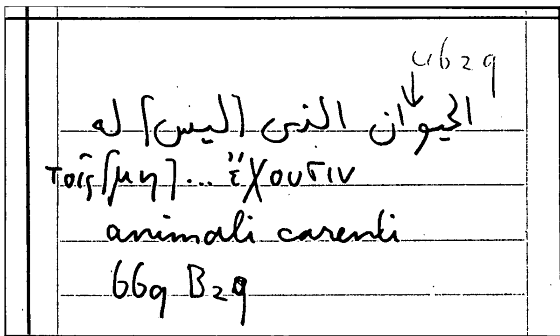 الحيوان الذى [ليس] له
τοῖς [μη] ... ἔχουσιν
animali carenti
669 B29